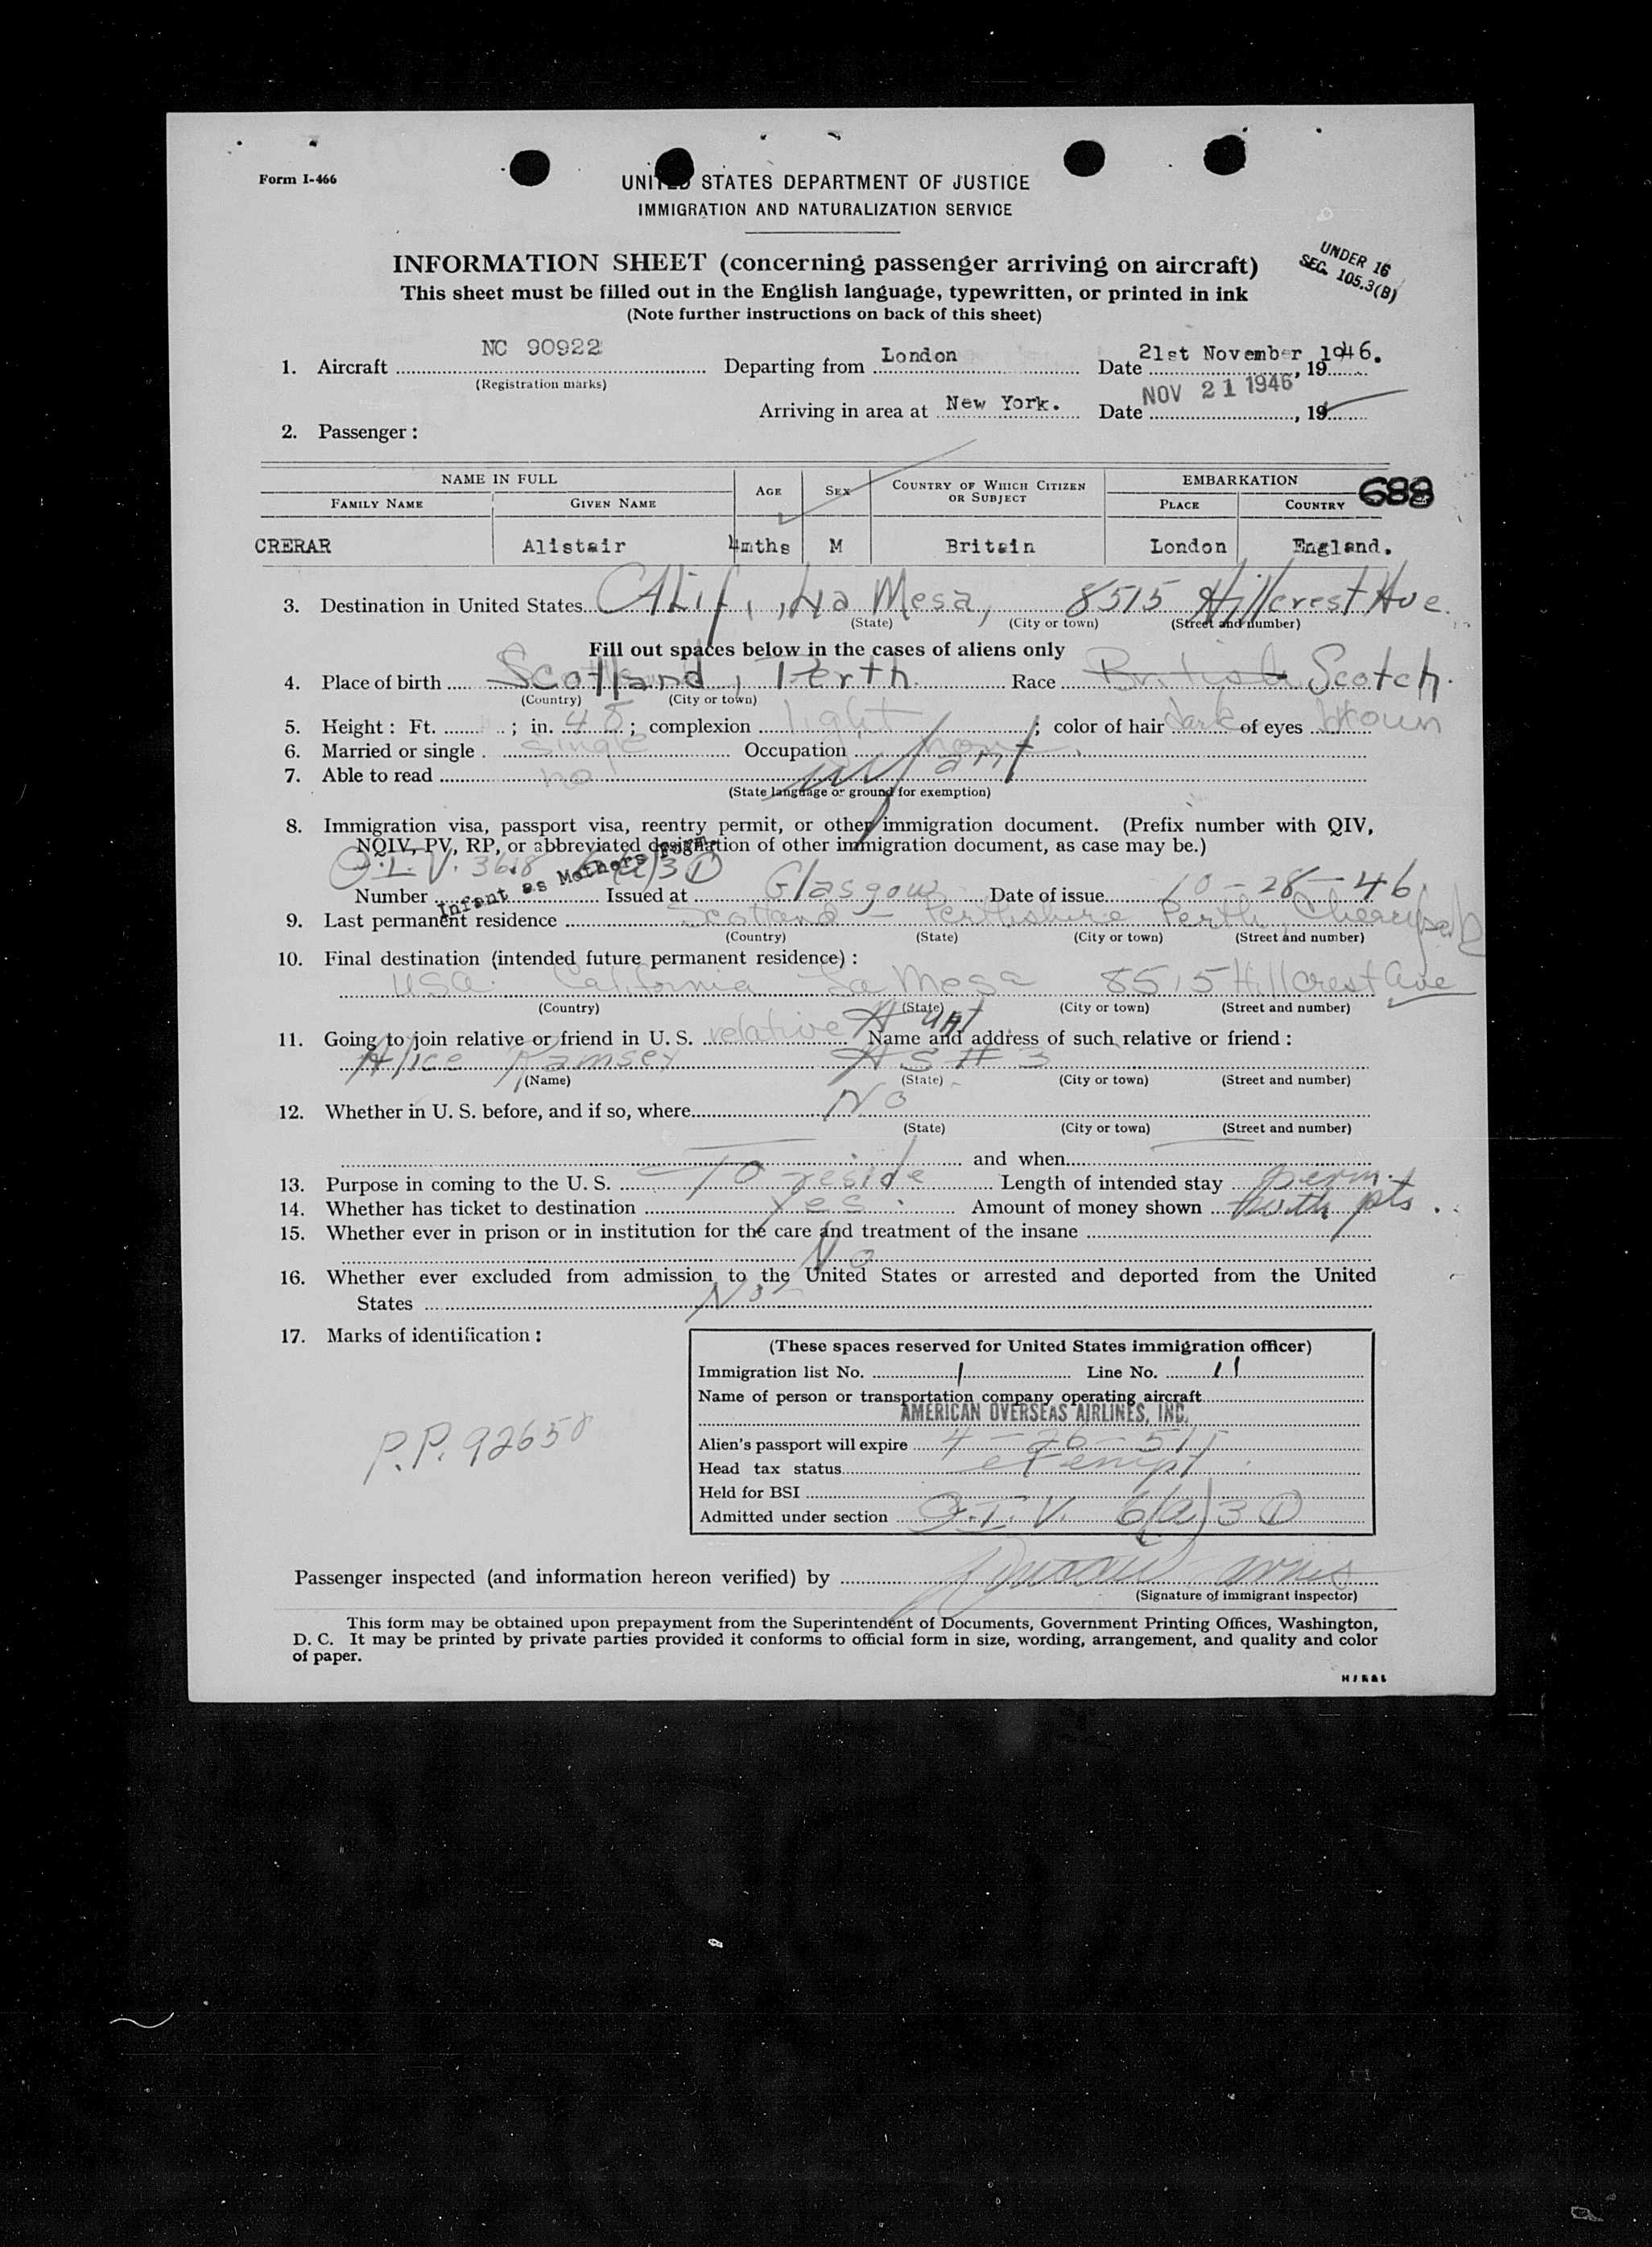 Form I-466
UNITED STATES DEPARTMENT OF JUSTICE
IMMIGRATION AND NATURALIZATION SERVICE
INFORMATION SHEET (concerning passenger arriving on aircraft)
UNDER 16
SEC. 105.3(B)
This sheet must be filled out in the English language, typewritten, or printed in ink
(Note further instructions on back of this sheet)
1. Aircraft NC 90922 Departing from London Date 21st November, 1946.
(Registration marks)
Arriving in area at New York. Date NOV 21 1946, 19
2. Passenger:
NAME IN FULL AGE SEX COUNTRY OF WHICH CITIZEN OR SUBJECT EMBARKATION 688
FAMILY NAME GIVEN NAME PLACE COUNTRY
CRERAR Alistair 4mths M Britain London England.
3. Destination in United States Calif., La Mesa, 8515 Hillcrest Ave.
(State) (City or town) (Street and number)
Fill out spaces below in the cases of aliens only
4. Place of birth Scotland, Perth Race British Scotch.
(Country) (City or town)
5. Height: Ft. ; in. ; complexion light ; color of hair dark of eyes brown
6. Married or single single Occupation none
7. Able to read no infant
(State language or ground for exemption)
8. Immigration visa, passport visa, reentry permit, or other immigration document. (Prefix number with QIV,
NQIV, PV, RP, or abbreviated designation of other immigration document, as case may be.)
Q.I.V. 3618 6(a)3 (1)
Infant as Mothers Form
Number Issued at Glasgow Date of issue 10-28-46
9. Last permanent residence Scotland - Perthshire Perth,
(Country) (State) (City or town) (Street and number)
10. Final destination (intended future permanent residence):
USA. California La Mesa 8515 Hillcrest Ave
(Country) (State) (City or town) (Street and number)
11. Going to join relative or friend in U. S. relative Aunt Name and address of such relative or friend:
Alice Ramsey AS # 3
(Name) (State) (City or town) (Street and number)
12. Whether in U. S. before, and if so, where No
(State) (City or town) (Street and number)
and when
13. Purpose in coming to the U. S. To reside Length of intended stay perm.
14. Whether has ticket to destination Yes. Amount of money shown with pts.
15. Whether ever in prison or in institution for the care and treatment of the insane
No
16. Whether ever excluded from admission to the United States or arrested and deported from the United
States No
17. Marks of identification:
(These spaces reserved for United States immigration officer)
Immigration list No. 1 Line No. 11
Name of person or transportation company operating aircraft
AMERICAN OVERSEAS AIRLINES, INC.
P.P. 92658
Alien's passport will expire 4-26-51
Head tax status exempt
Held for BSI
Admitted under section Q.I.V. 6(a)3 (1)
Passenger inspected (and information hereon verified) by
(Signature of immigrant inspector)
This form may be obtained upon prepayment from the Superintendent of Documents, Government Printing Offices, Washington,
D. C. It may be printed by private parties provided it conforms to official form in size, wording, arrangement, and quality and color
of paper.